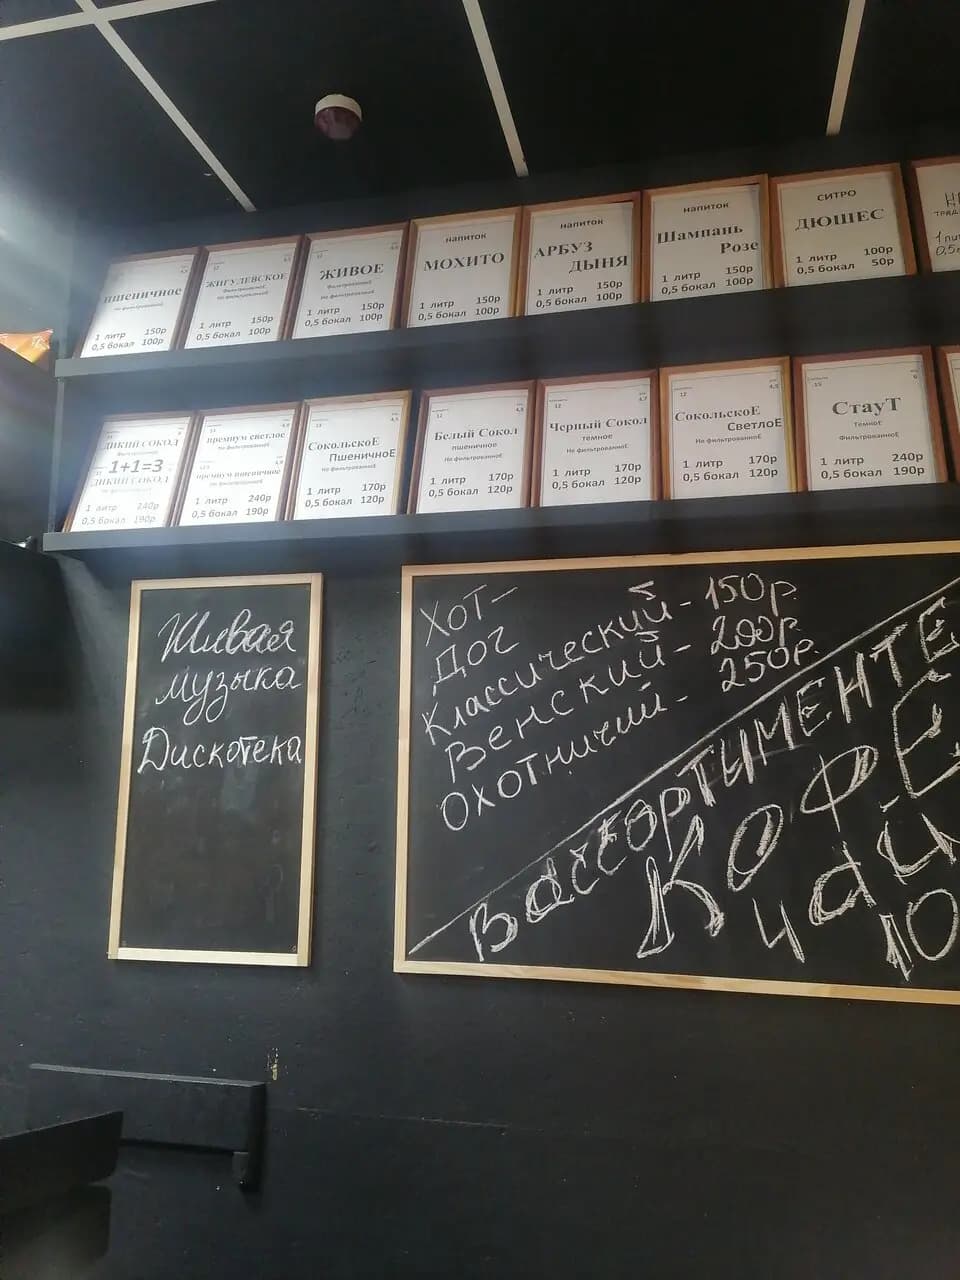 пшеничное
Не фильтрованноЕ
1 литр 150р
0,5 бокал 100р
ЖИГУЛЕВСКОЕ
ФильтрованноЕ
Не фильтрованноЕ
1 литр 150р
0,5 бокал 100р
ЖИВОЕ
ФильтрованноЕ
Не фильтрованноЕ
1 литр 150р
0,5 бокал 100р
напиток
МОХИТО
1 литр 150р
0,5 бокал 100р
напиток
АРБУЗ
ДЫНЯ
1 литр 150р
0,5 бокал 100р
напиток
Шампань
Розе
1 литр 150р
0,5 бокал 100р
СИТРО
ДЮШЕС
1 литр 100р
0,5 бокал 50р
ДИКИЙ СОКОЛ
ФильтрованноЕ
1+1=3
ДИКИЙ СОКОЛ
Не фильтрованноЕ
1 литр 240р
0,5 бокал 190р
премиум светлое
Не фильтрованноЕ
премиум пшеничное
Не фильтрованноЕ
1 литр 240р
0,5 бокал 190р
СокольскоЕ
ПшеничноЕ
Не фильтрованноЕ
1 литр 170р
0,5 бокал 120р
12 4,5
Белый Сокол
пшеничное
Не фильтрованноЕ
1 литр 170р
0,5 бокал 120р
12 4,7
Черный Сокол
темное
Не фильтрованноЕ
1 литр 170р
0,5 бокал 120р
12 4,5
СокольскоЕ
СветлоЕ
Не фильтрованноЕ
1 литр 170р
0,5 бокал 120р
15 6
СтауТ
ТемноЕ
ФильтрованноЕ
1 литр 240р
0,5 бокал 190р
Живая
музыка
Дискотека
Хот-
Дог
Классический - 150р.
Венский - 200р.
Охотничий - 250р.
В ассортименте
Кофе
чай